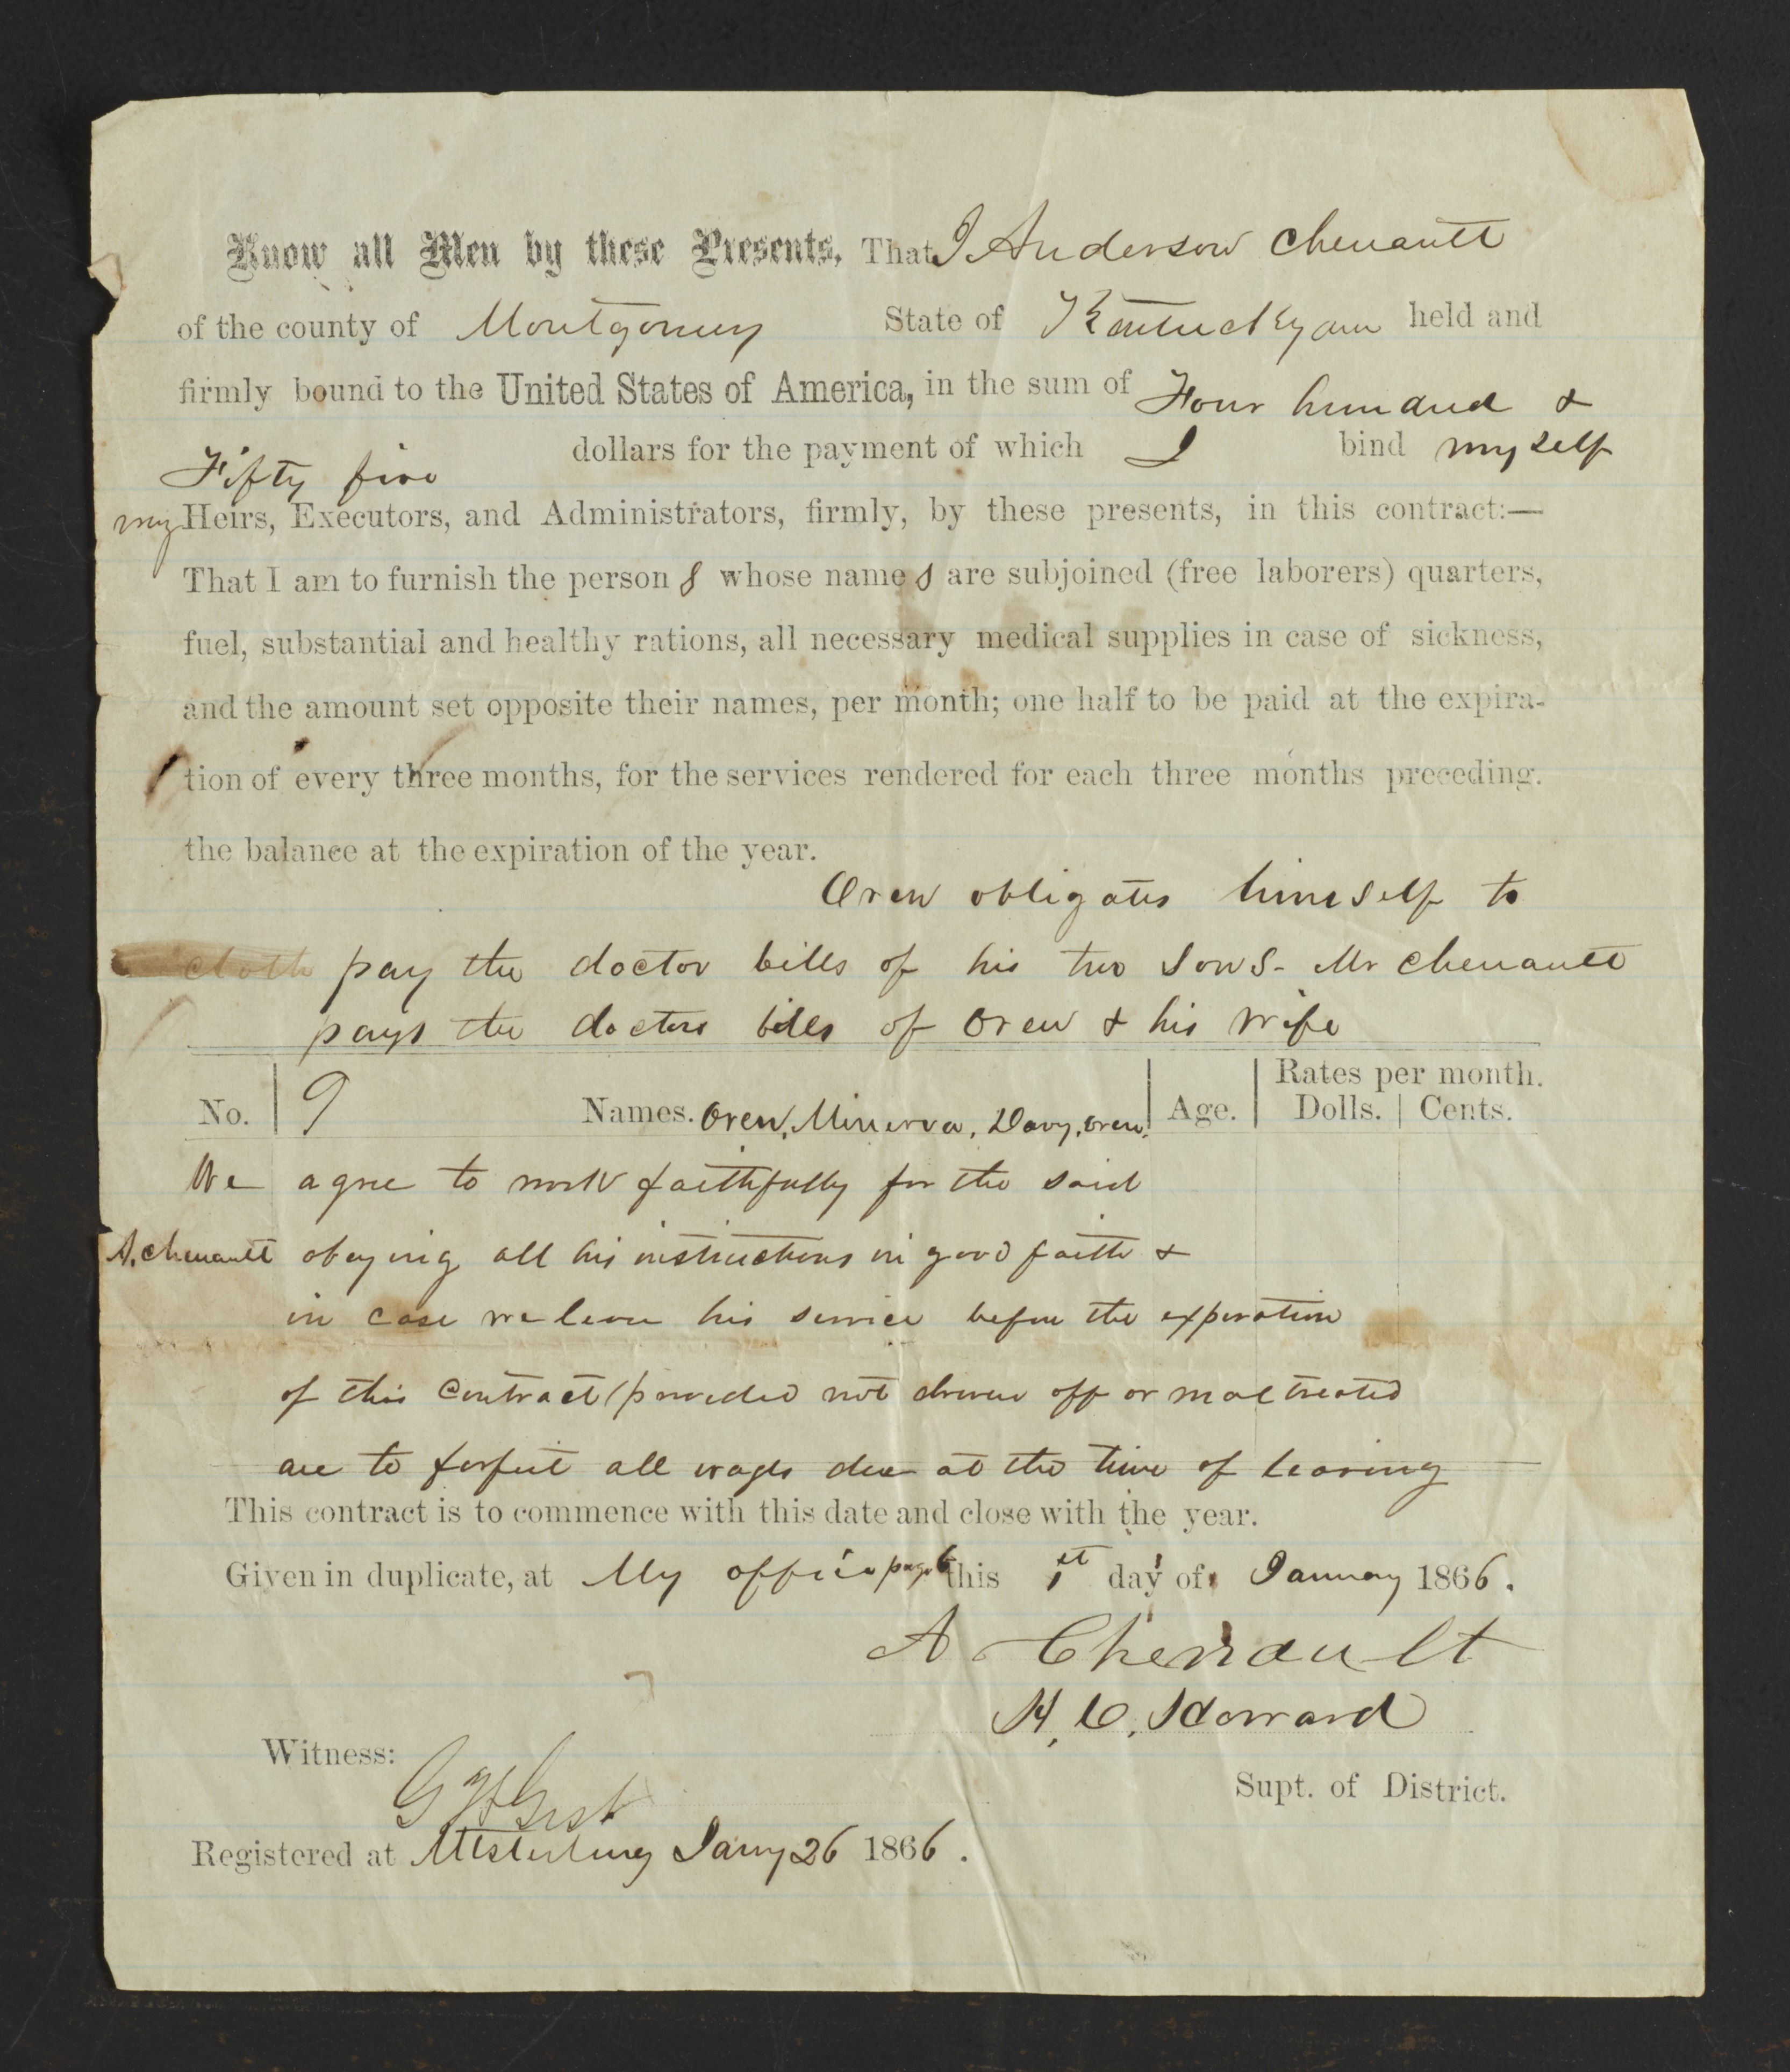 Know all Men by these Presents, That I Anderson Chenault
of the county of Montgomery State of Kentucky am held and
firmly bound to the United States of America, in the sum of Four hundred &
Fifty five dollars for the payment of which I bind myself
my Heirs, Executors, and Administrators, firmly, by these presents, in this contract:—
That I am to furnish the person s whose name s are subjoined (free laborers) quarters,
fuel, substantial and healthy rations, all necessary medical supplies in case of sickness,
and the amount set opposite their names, per month; one half to be paid at the expira-
tion of every three months, for the services rendered for each three months preceding.
the balance at the expiration of the year.
Oren obligates himself to
cloth pay the doctor bills of his two sons - Mr Chenault
pays the doctors bills of Oren & his wife
No. 9 Names. Oren, Minerva, Davy, Oren, Age. Rates per month. Dolls. Cents.
We agree to work faithfully for the said
A. Chenault obeying all his instructions in good faith &
in case we leave his service before the experation
of this Contract (provided not driven off or maltreated
are to forfeit all wages due at the time of leaving
This contract is to commence with this date and close with the year.
Given in duplicate, at My office page 6 this 1st day of January 1866.
A Chenault
H. C. Howard
Witness:
Supt. of District.
Registered at Mtsterling Jany 26 1866.